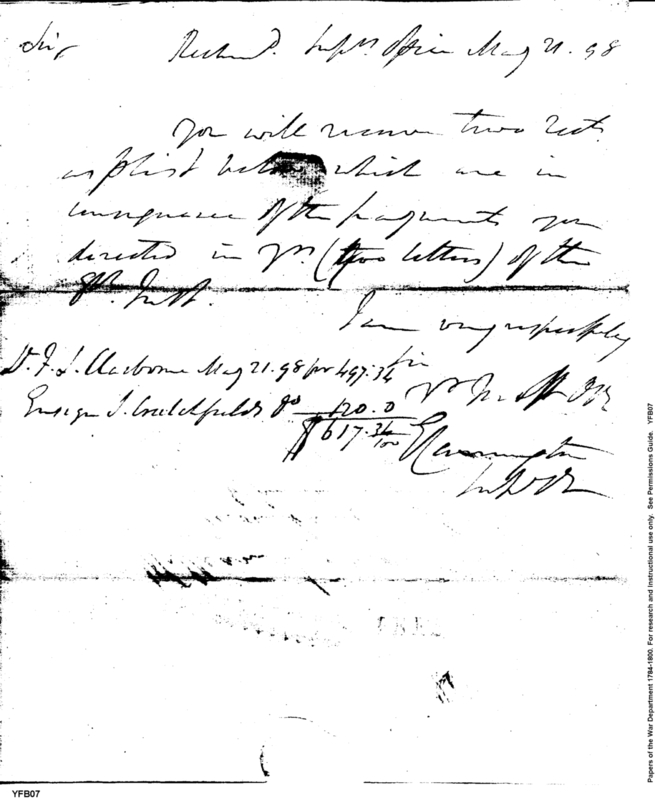 Sir, Richmd. Supvrs Office May 21. 98
you will receive two rects.
as pr list below which are in
consequence of the payments you
directed in yrs (two letters) of the
8th. Inst.
I am very respectfully
Sir
Lt. F. L. Claiborne May 21. 98 for 497.34
Ensign J. Crutchfields do 120.0
$617.34/100
Yr M. Obt
E Carrington
YFB07
Papers of the War Department 1784-1800. For research and Instructional use only. See Permissions Guide. YFB07